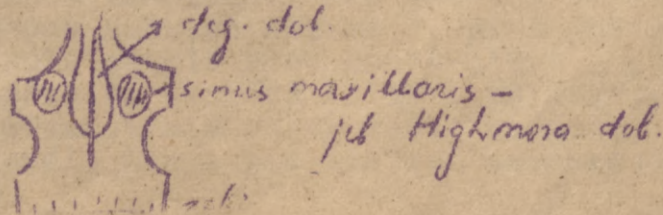 deg. dob.
sinus maxillaris –
jeb Highmora dob.
zobi